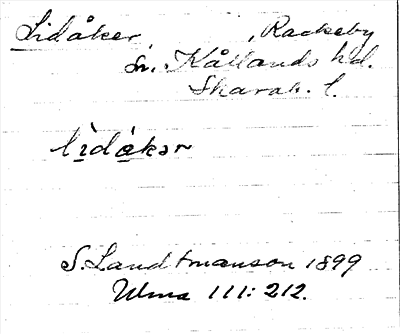 Lidåker, Rackeby
sn. Kållands hd.
Skarab. l.
lìdákər
S. Landtmanson 1899
Ulma 111: 212.